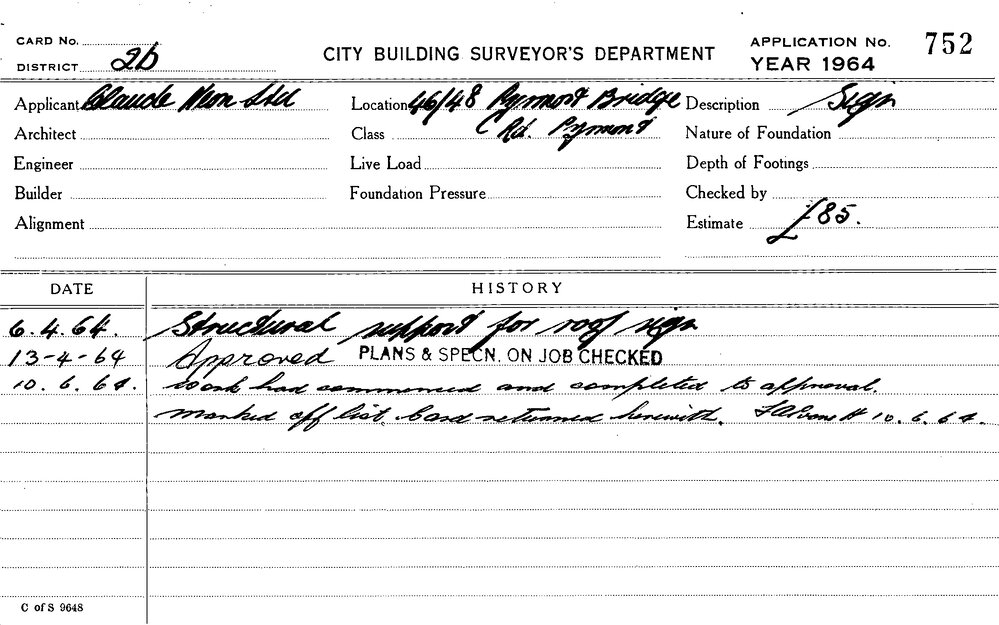 CARD No.
DISTRICT 2b
CITY BUILDING SURVEYOR'S DEPARTMENT
APPLICATION No. 752
YEAR 1964
Applicant Claude Neon Ltd
Location 46/48 Pyrmont Bridge
Description Sign
Architect
Class Rd. Pyrmont
Nature of Foundation
Engineer
Live Load
Depth of Footings
Builder
Foundation Pressure
Checked by
Alignment
Estimate £85.
DATE HISTORY
6.4.64. Structural support for roof sign
13-4-64 Approved PLANS & SPECN. ON JOB CHECKED
10.6.64. Work had commenced and completed to approval.
Marked off list. Card returned herewith. 10.6.64.
C of S 9648